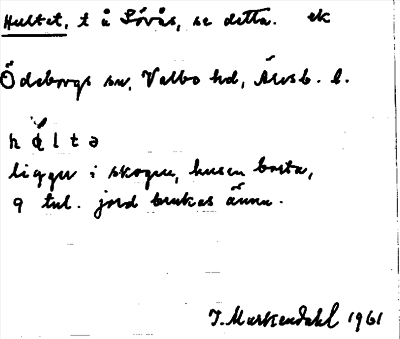 Hultet, t å Lövås, se detta. ek
Ödeborgs sn, Valbo hd, Älvsb. l.
hål t ə
ligger i skogen, husen borta,
9 tnl. jord brukas ännu.
J. Markendahl 1961